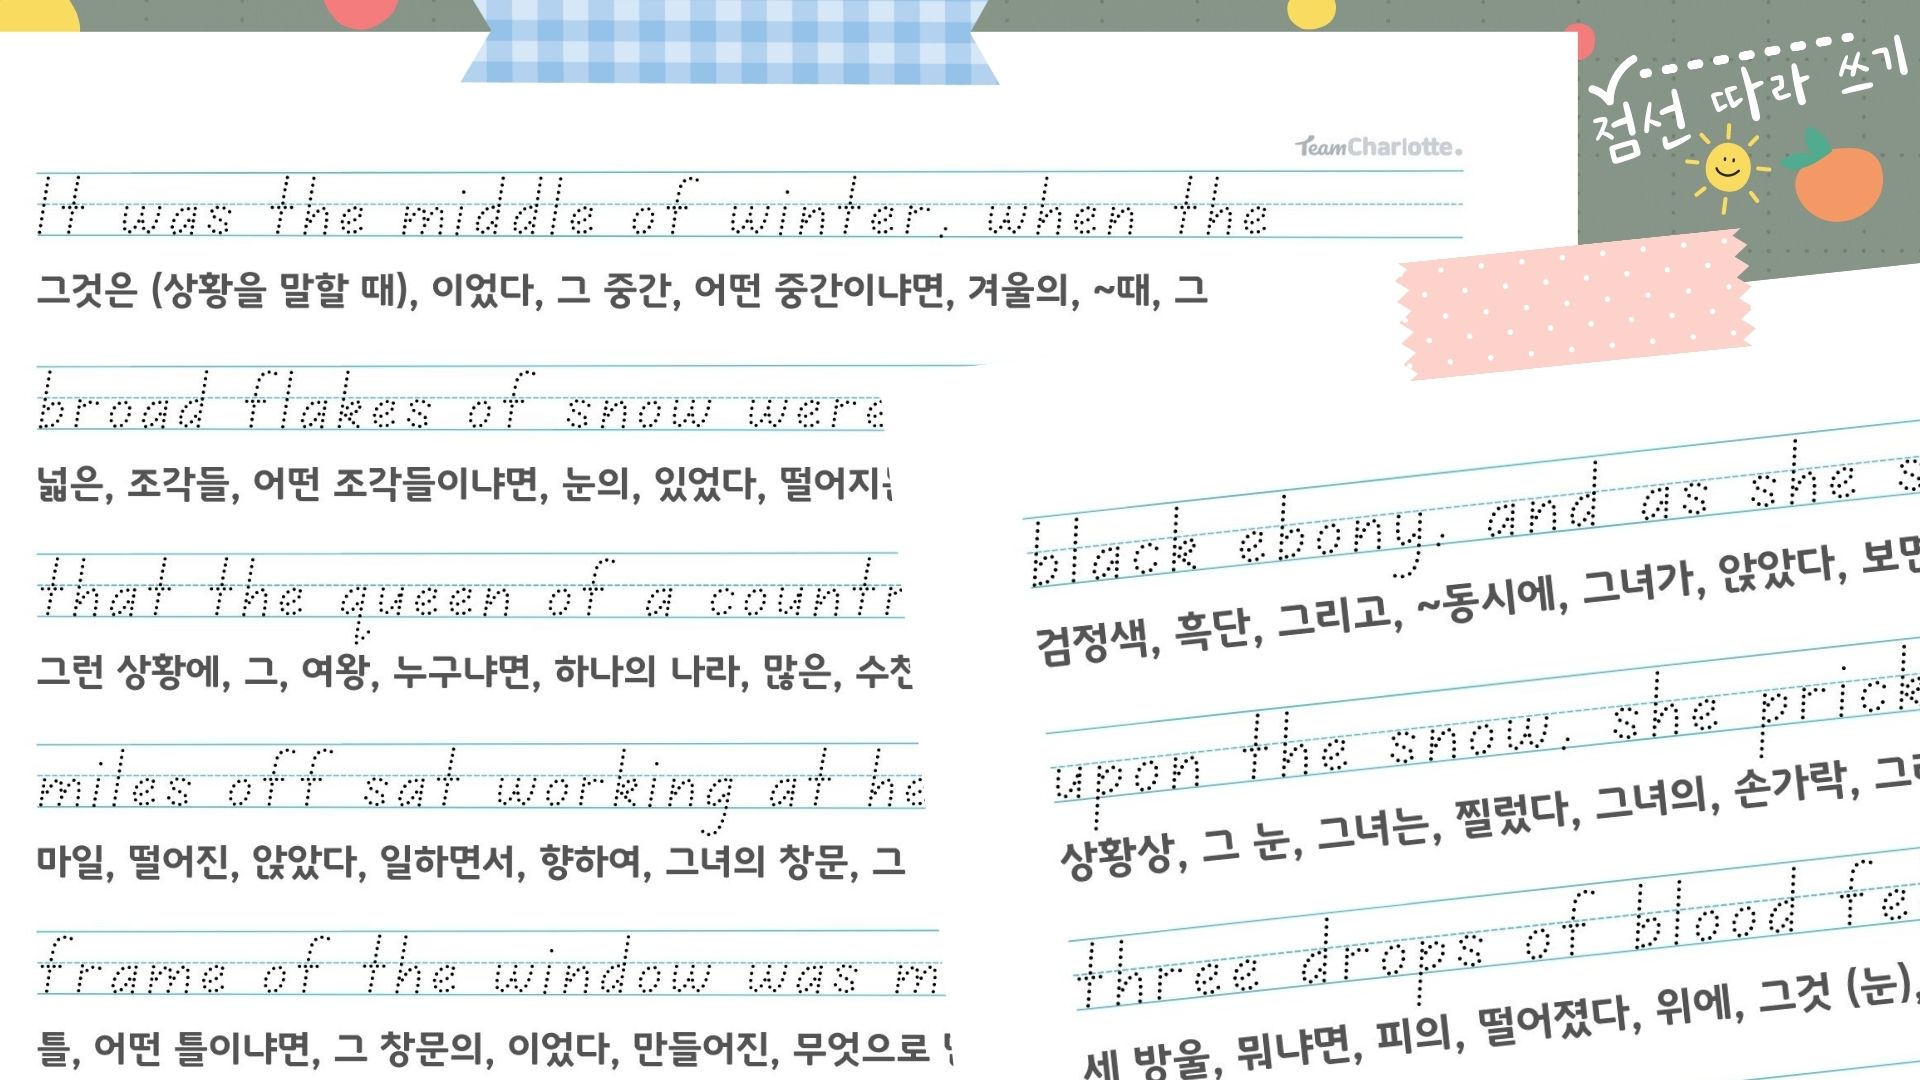 점선 따라 쓰기
TeamCharlotte.
It was the middle of winter, when the
그것은 (상황을 말할 때), 이었다, 그 중간, 어떤 중간이냐면, 겨울의, ~때, 그
broad flakes of snow were
넓은, 조각들, 어떤 조각들이냐면, 눈의, 있었다,
that the queen of a
그런 상황에, 그, 여왕, 누구냐면, 하나의 나라, 많은,
miles off sat working at
마일, 떨어진, 앉았다, 일하면서, 향하여, 그녀의 창문, 그
frame of the window was
틀, 어떤 틀이냐면, 그 창문의, 이었다, 만들어진, 무엇으로
black ebony, and as she
검정색, 흑단, 그리고, ~동시에, 그녀가, 앉았다,
upon the snow, she
상황상, 그 눈, 그녀는, 찔렀다, 그녀의, 손가락,
three drops of blood
세 방울, 뭐냐면, 피의, 떨어졌다, 위에, 그것 (눈),